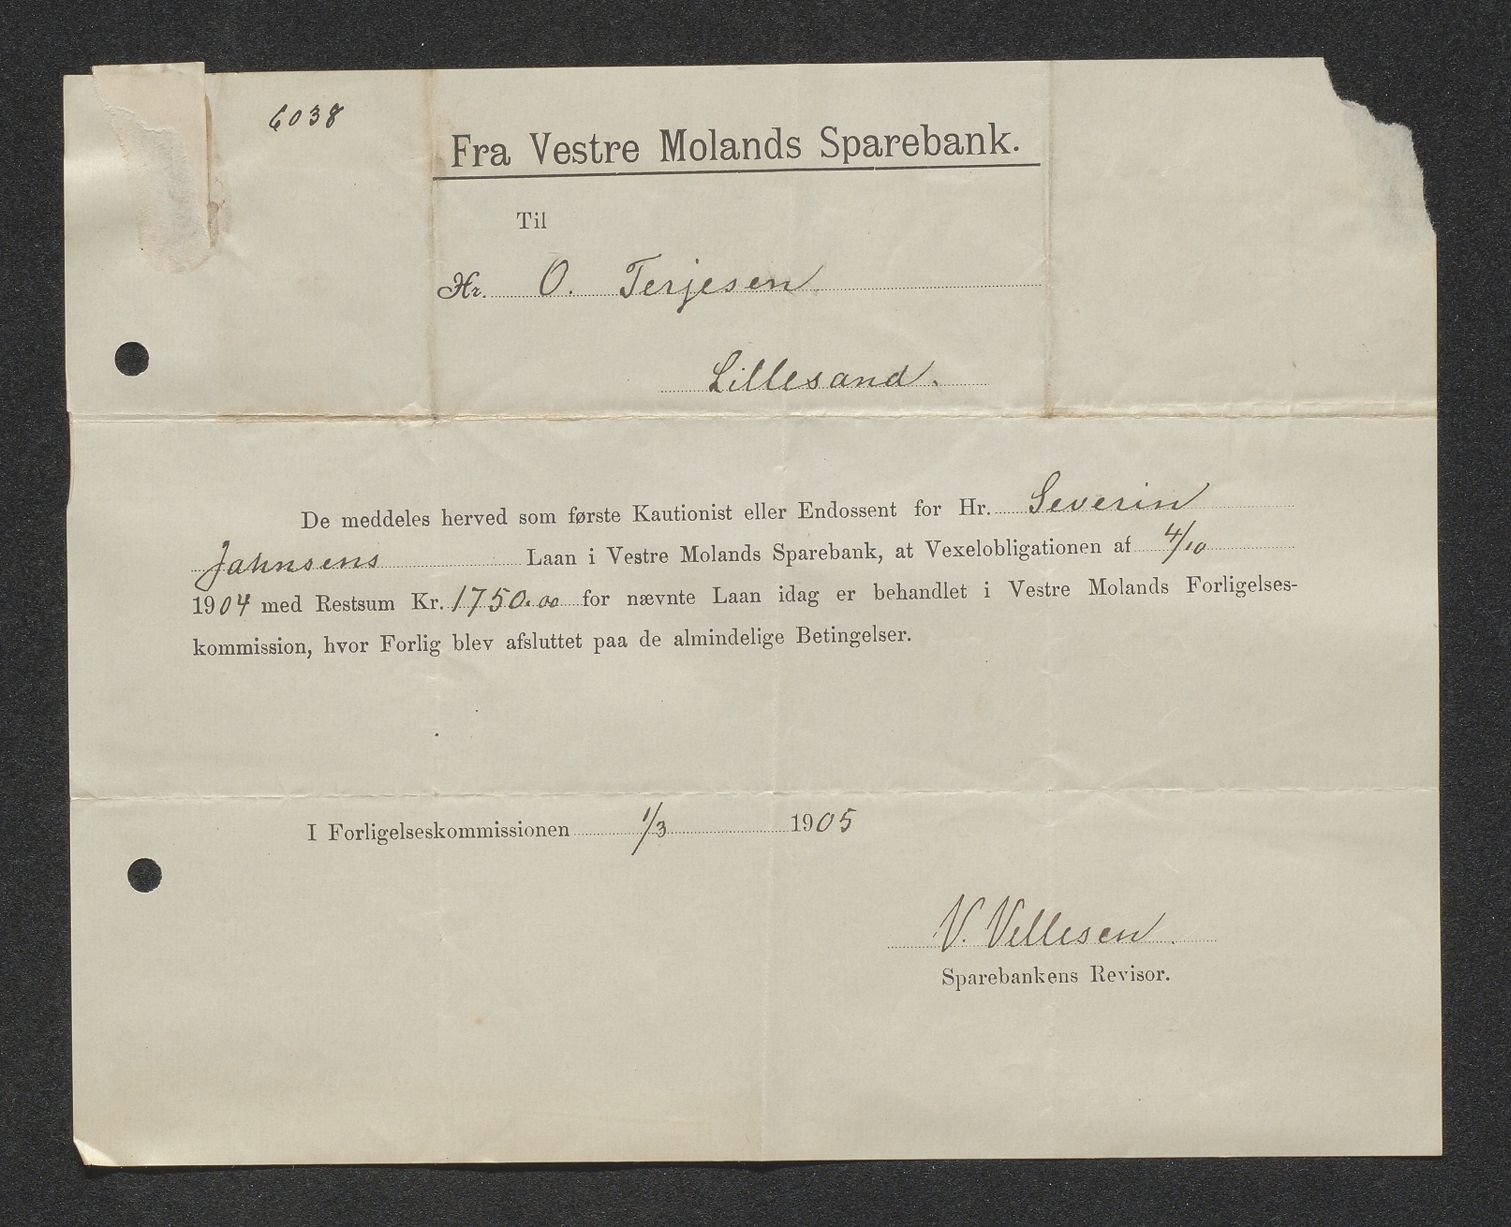 6038
Fra Vestre Molands Sparebank.
Til
Hr. O. Terjesen
Lillesand.
De meddeles herved som første Kautionist eller Endossent for Hr. Severin
Jahnsens Laan i Vestre Molands Sparebank, at Vexelobligationen af 4/10
1904 med Restsum Kr. 1750.00 for nævnte Laan idag er behandlet i Vestre Molands Forligelses-
kommission, hvor Forlig blev afsluttet paa de almindelige Betingelser.
I Forligelseskommissionen 1/3 1905
V. Vellesen.
Sparebankens Revisor.